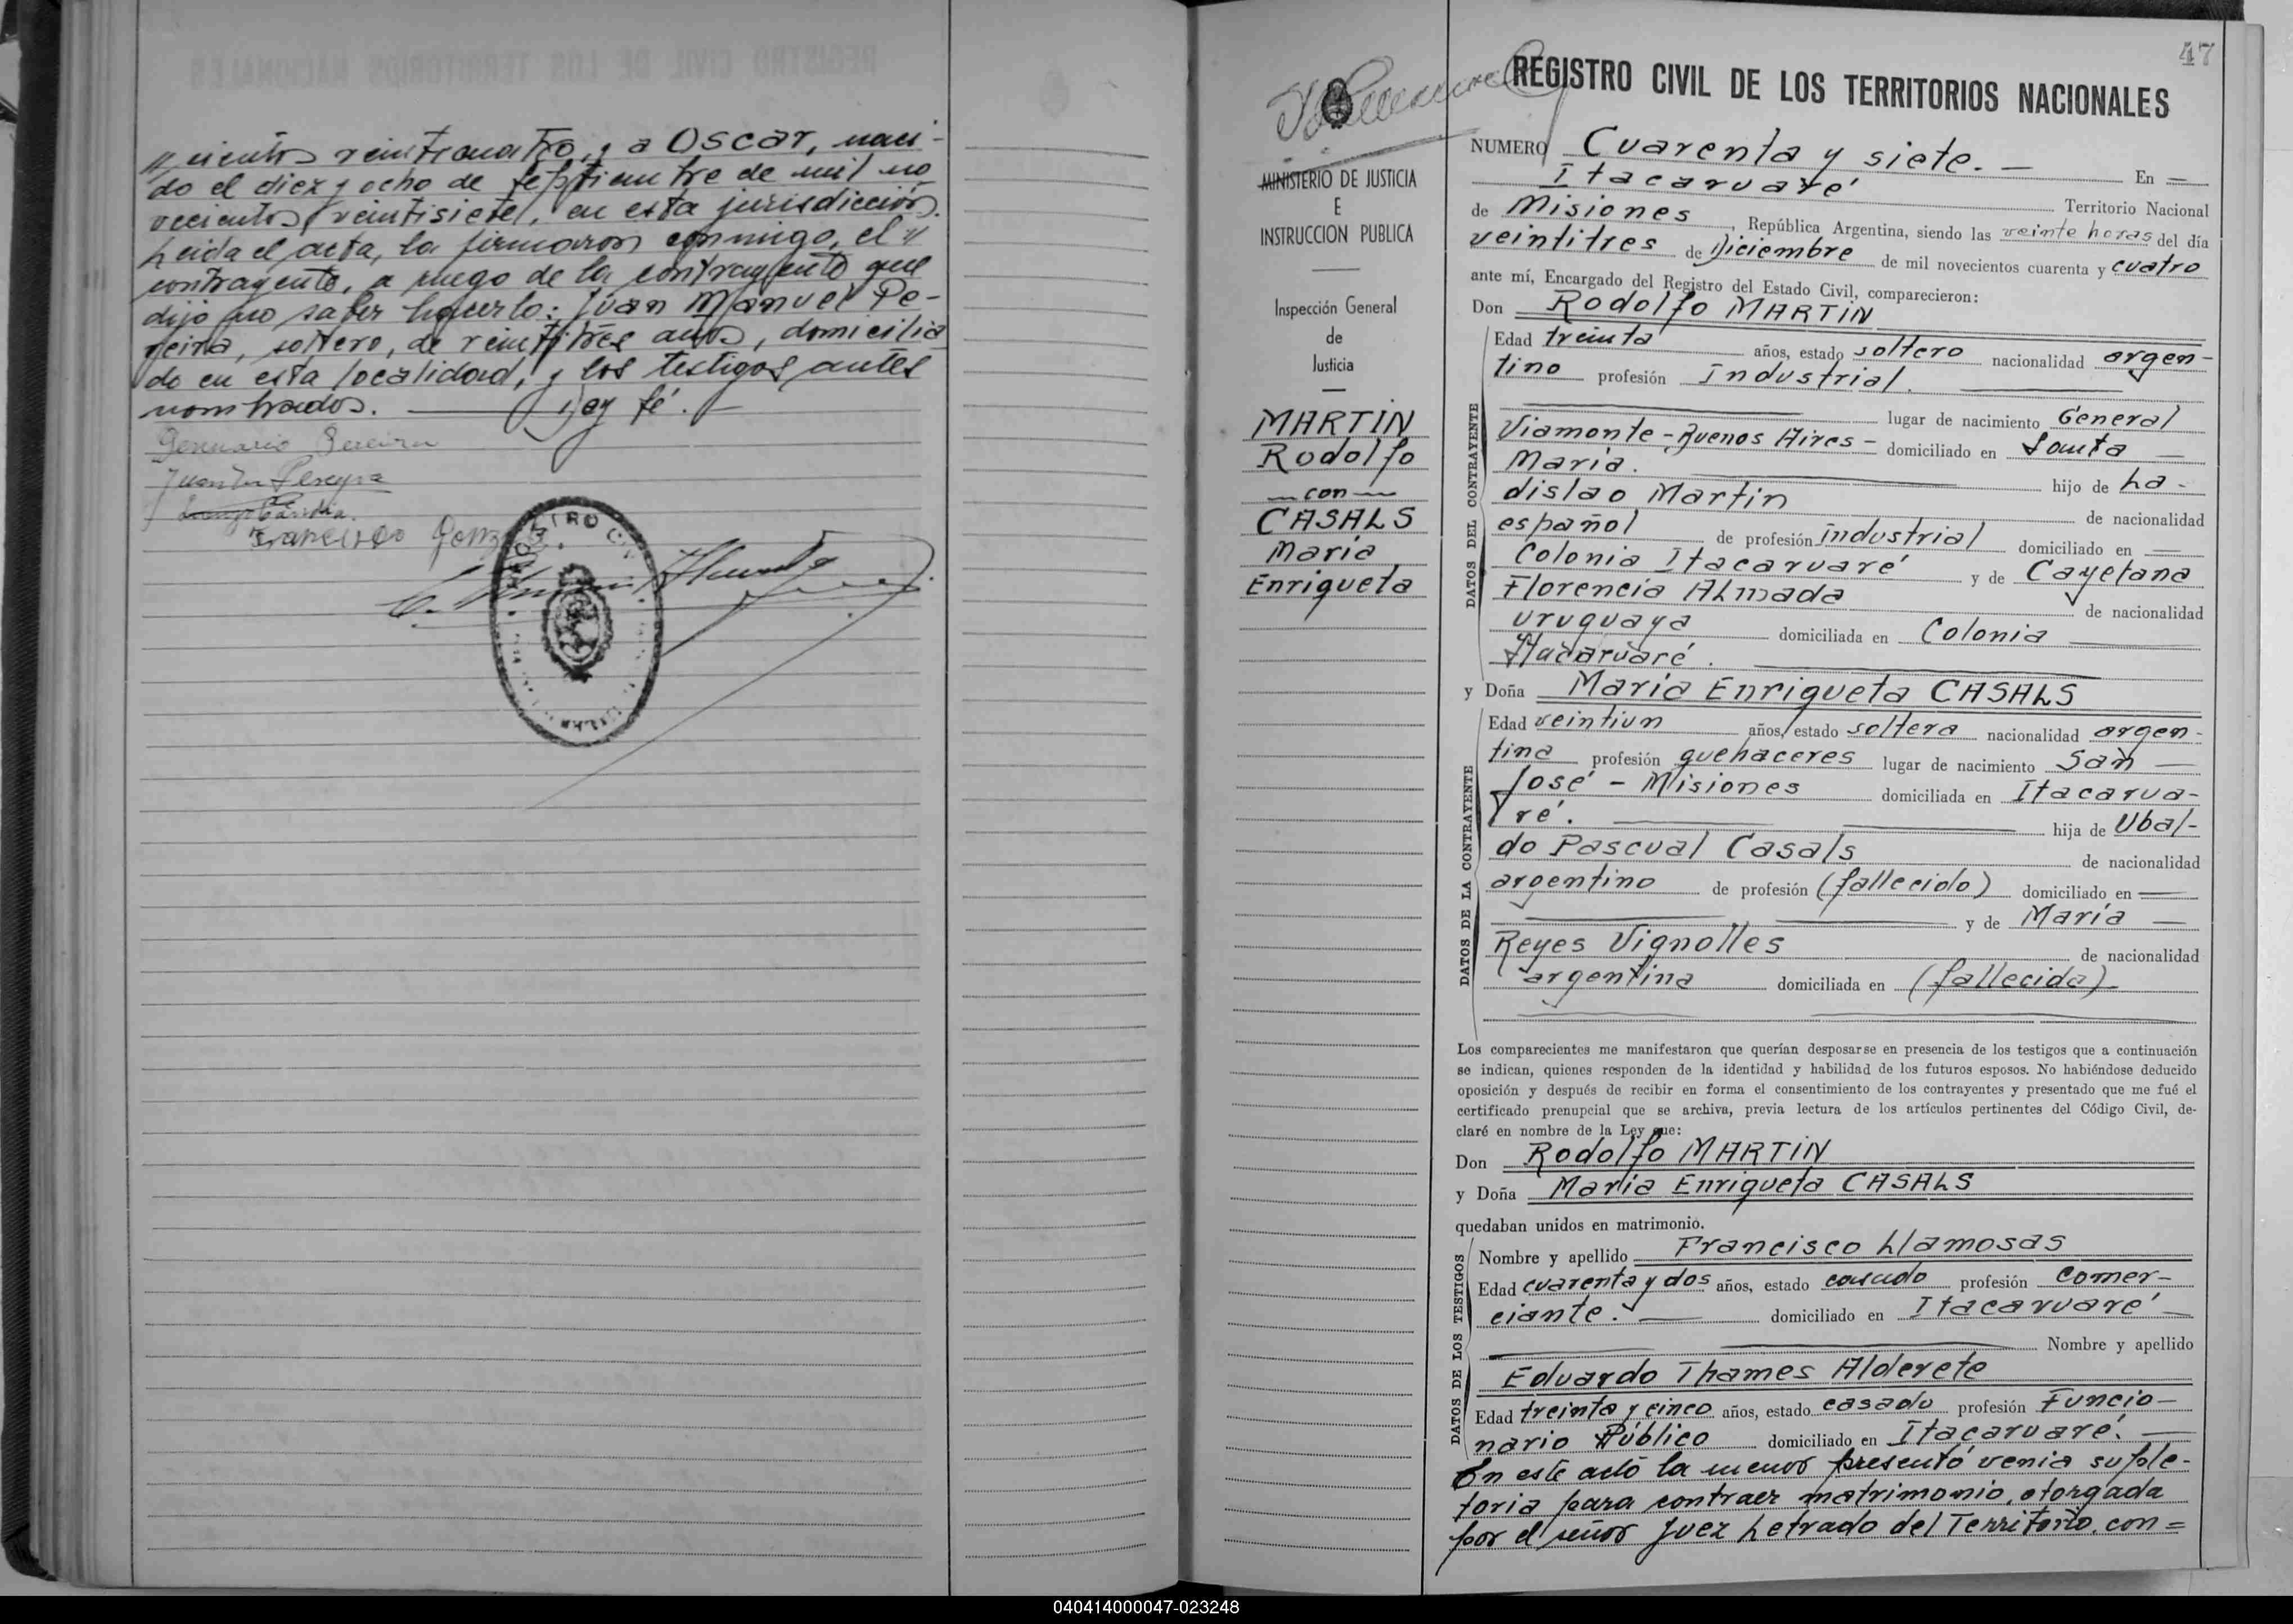 // cientos veinticuatro, y a Oscar, naci-
do el diez y ocho de septiembre de mil no
vecientos veintisiete, en esta jurisdicción.
Leida el acta, la firmaron conmigo, el //
contrayente, a ruego de la contrayente que
dijo no saber hacerlo: Juan Manuel Pe-
reira, soltero, de veintitrés años, domicilia
do en esta localidad, y los testigos antes
nombrados. Doy fé.
Genuario Pereira
Juan M Pereyra
Francisco
47
REGISTRO CIVIL DE LOS TERRITORIOS NACIONALES
MINISTERIO DE JUSTICIA
E
INSTRUCCION PUBLICA
Inspección General
de
Justicia
MARTIN
Rodolfo
— con —
CASALS
María
Enriqueta
NUMERO Cuarenta y siete. —
Itacaruaré En —
Territorio Nacional
de Misiones, República Argentina, siendo las veinte horas del día
veintitres de Diciembre de mil novecientos cuarenta y cuatro
ante mí, Encargado del Registro del Estado Civil, comparecieron:
Don Rodolfo MARTIN
DATOS DEL CONTRAYENTE
Edad treinta años, estado soltero nacionalidad argen-
tino profesión Industrial.
lugar de nacimiento General
Viamonte - Buenos Aires - domiciliado en Santa
María. hijo de La-
dislao Martin de nacionalidad
español de profesión industrial domiciliado en —
Colonia Itacaruaré y de Cayetana
Florencia Almada de nacionalidad
uruguaya domiciliada en Colonia
Itacaruaré.
y Doña María Enriqueta CASALS
DATOS DE LA CONTRAYENTE
Edad veintiun años, estado soltera nacionalidad argen-
tina profesión quehaceres lugar de nacimiento San —
José - Misiones domiciliada en Itacarua-
ré. hija de Ubal-
do Pascual Casals de nacionalidad
argentino de profesión (fallecido) domiciliado en —
y de María —
Reyes Vignolles de nacionalidad
argentina domiciliada en (fallecida)
Los comparecientes me manifestaron que querían desposarse en presencia de los testigos que a continuación
se indican, quienes responden de la identidad y habilidad de los futuros esposos. No habiéndose deducido
oposición y después de recibir en forma el consentimiento de los contrayentes y presentado que me fué el
certificado prenupcial que se archiva, previa lectura de los artículos pertinentes del Código Civil, de-
claré en nombre de la Ley que:
Don Rodolfo MARTIN
y Doña María Enriqueta CASALS
quedaban unidos en matrimonio.
DATOS DE LOS TESTIGOS
Nombre y apellido Francisco Llamosas
Edad cuarenta y dos años, estado casado profesión Comer-
ciante. — domiciliado en Itacaruaré —
Nombre y apellido
Eduardo Thames Alderete
Edad treinta y cinco años, estado casado profesión Funcio-
nario Público domiciliado en Itacaruaré. —
En este acto la menor presentó venia suple-
toria para contraer matrimonio, otorgada
por el señor Juez Letrado del Territorio, con =
040414000047-023248